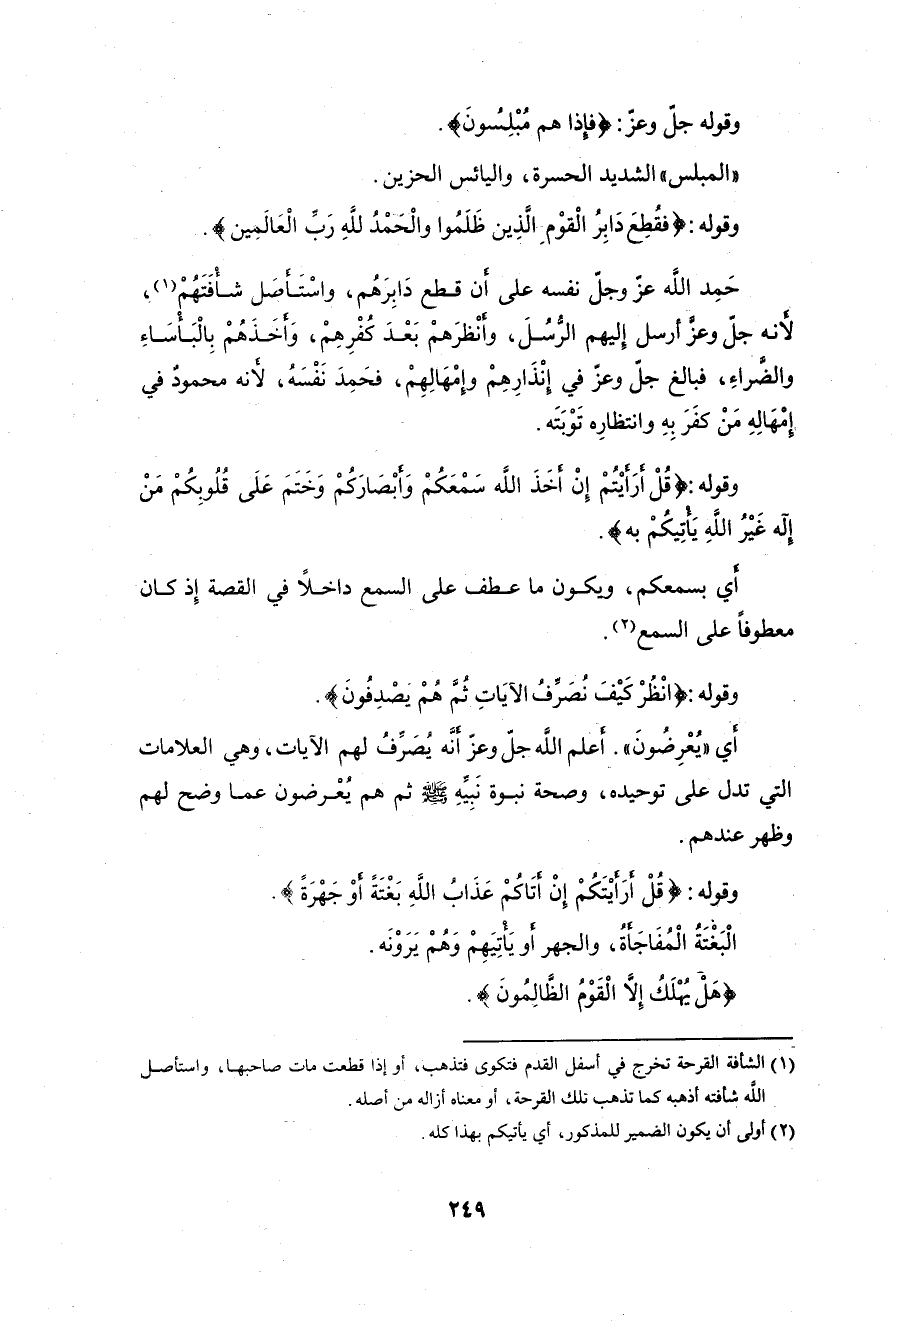 وقوله جلّ وعزّ : ﴿فإِذا هم مُبْلِسُونَ﴾ .
«المبلس» الشديد الحسرة ، واليائس الحزين .
وقوله : ﴿فقُطِعَ دَابِرُ الْقَوْمِ الَّذِين ظَلَمُوا والْحَمْدُ للَّهِ رَبِّ الْعَالَمِين﴾ .
حَمِد اللَّه عزّ وجلّ نفسه على أَن قـطع دَابِرَهُم ، واسْتَـأصَل شـأْفَتَهُمْ(١) ،
لأَنـه جلّ وعزَّ أرسل إليهم الرُّسُـلَ ، وأَنْظَرَهمْ بَعْـدَ كُفْرِهِمْ ، وَأَخَـذَهُمْ بِالْبَـأْسَـاءِ
والضَّراءِ ، فبالغ جلّ وعزّ في إنْذَارِهِمْ وإِمْهَالِهِمْ ، فحَمِدَ نَفْسَهُ ، لأَنه محمودٌ في
إِمْهَالِهِ مَنْ كفَرَ بِهِ وانتظاره تَوْبَتَه .
وقوله :﴿قُلْ أَرَأَيْتُمْ إِنْ أَخَذَ اللَّه سَمْعَكُمْ وَأَبْصَارَكُمْ وَخَتَمَ عَلَى قُلُوبِكُمْ مَنْ
إِلَه غَيْرُ اللَّهِ يَأْتِيكُمْ به﴾ .
أَي بسمعكم ، ويكـون ما عـطف على السمع داخـلاً في القصة إِذ كـان
معطوفاً على السمع(٢) .
وقوله :﴿انْظُرْ كَيْفَ نُصَرِّفُ الآيَاتِ ثُمَّ هُمْ يَصْدِفُونَ﴾ .
أَي «يُعْرِضُونَ» . أَعلم اللَّه جلّ وعزّ أنَّه يُصَرِّفُ لهم الآيات ، وهي العلامات
التي تدل على توحيده ، وصحة نبـوة نَبِيِّهِ ﷺ ثم هم يُعْـرضون عمـا وضح لهم
وظهر عندهم .
وقوله : ﴿قُلْ أَرَأَيْتَكُمْ إِنْ أَتَاكُمْ عَذَابُ اللَّهِ بَغْتَةً أَوْ جَهْرَةً﴾ .
الْبَغْتَةُ الْمُفَاجَأَةُ ، والجهر أَو يَأْتِيَهِمْ وَهُمْ يَرَوْنَه .
﴿هَلْ يُهْلَكُ إِلَّا الْقَوْمُ الظَّالِمُونَ﴾ .
(١) الشأفة القرحة تخرج في أسفل القدم فتكوى فتذهب ، أو إذا قطعت مات صاحبهـا ، واستأصـل
اللَّه شأفته أذهبه كما تذهب تلك القرحة ، أو معناه أزاله من أصله .
(٢) أولى أن يكون الضمير للمذكور ، أي يأتيكم بهذا كله .
٢٤٩